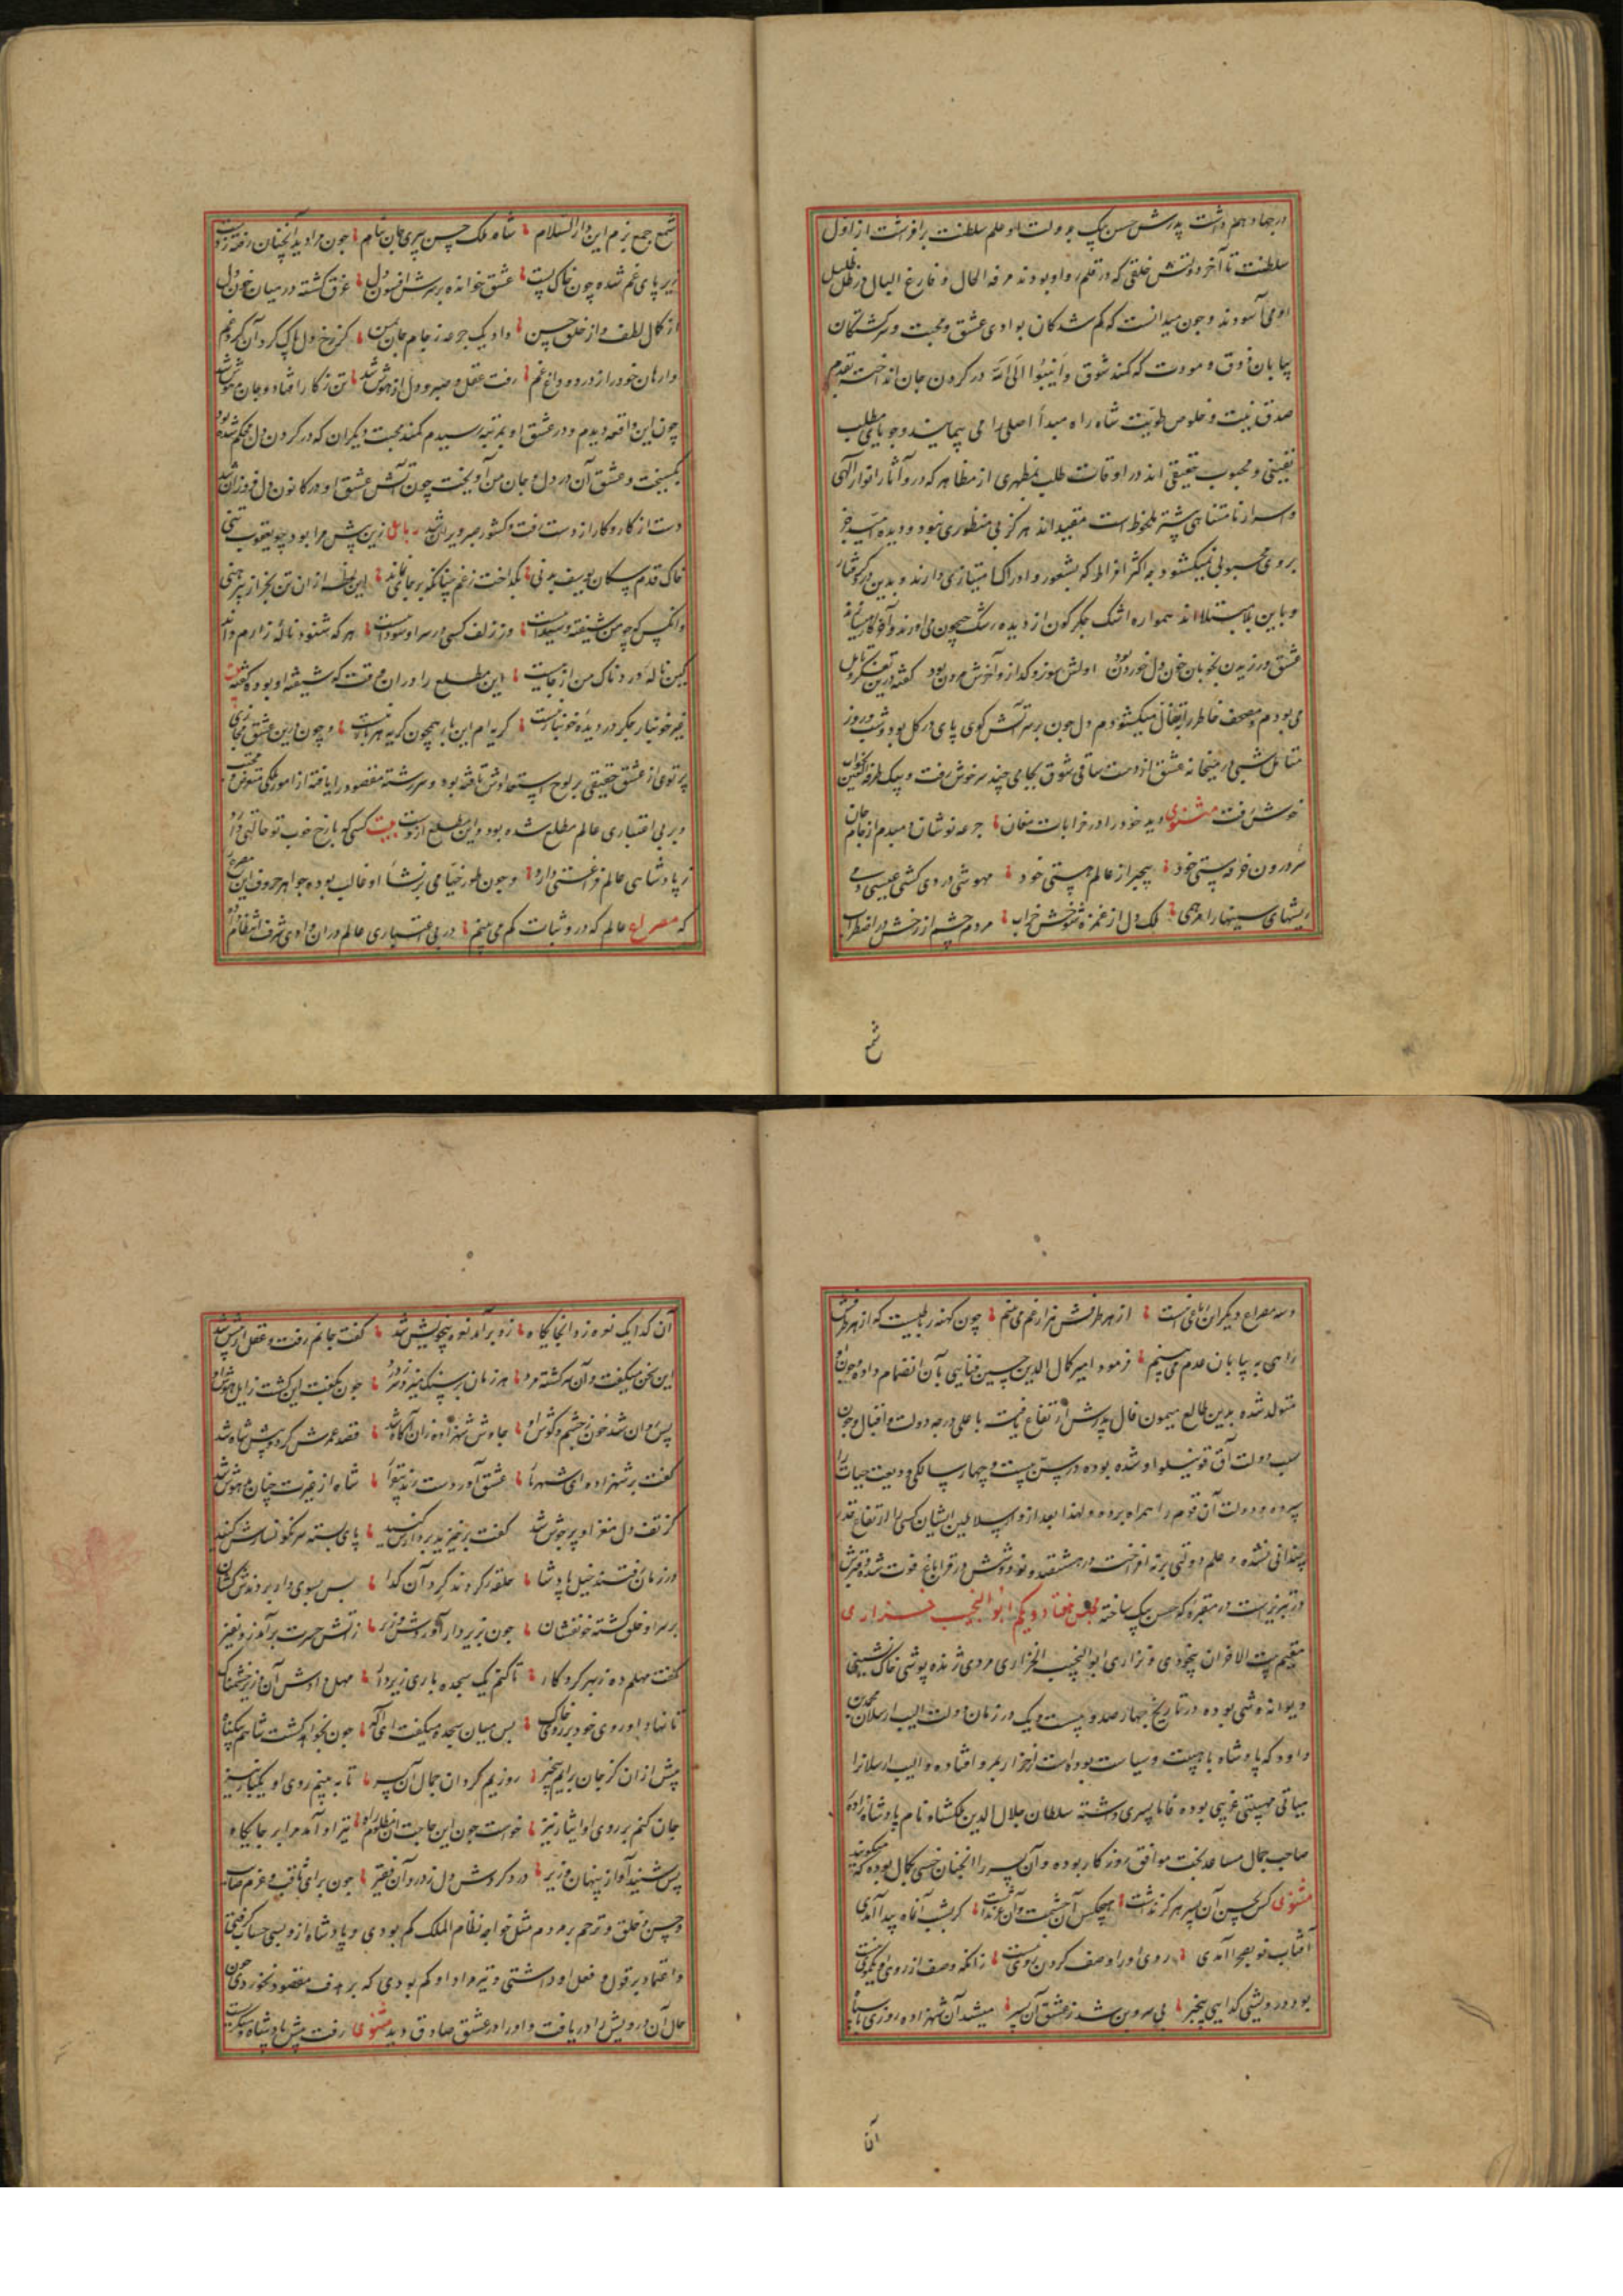 در جهاد و هم داشت پدرش حسن بیک به دولت او علم سلطنت برافراشت از اول
سلطنت تا آخر دولتش خلقی که در قلمرو او بودند مرفه الحال و فارغ البال در ظل ظلیل
او می آسودند و چون میدانست که گم شدگان بوادی عشق و محبت و سرگشتگان
بیابان ذوق و مودت که کمند شوق وانیبوا الی الله در گردن جان انداخته بقدم
صدق نیت و خلوص طویت شاه راه مبدأ اصلی را می پیمایند و جویای مطلب
یقینی و محبوب حقیقی اند در اوقات طلب بمظهری از مظاهر که درو آثار انوار آلهی
و اسرار نامتناهی بیشتر ملحوظ است مقیداند هرگز بی منظوری نبود و دیده جز
بروی محبوبی نمیگشود به اکثر افراط که بشعور و ادراک امتیازی دارند و بدین گرفتار
و باین بلا مبتلااند همواره اشک جگرگون از دیده رشک جیحون می آورند و
عشق ورزیدن بخوبان خون دل خوردن بود اولش سوز و گداز و آخرش مردن بود گفته درین تفکر و تامل
می بودم و مصحف خاطر را بتفأل میگشودم دل چون بر سر آتش کوی پای در گل بود و شب و روز
متامل شبی در میخانه عشق از دست ساقی شوق بجامی چند سرخوش رفت و بیک طرفة العین
خوش رفت مثنوی دید خود را در خرابات مغان جرعه نوشان دمبدم از جام جان
سر درون خرقه پستی خود بیخبر از عالم هستی خود مهوشی دردی کشی عیسی دمی
ریشهای سینها را مرهمی ملک دل از غمزه شوخش خراب مردم چشم از رخش در اضطراب
شمع
شمع جمع بزم این دار السلام شاه ملک حسن پیری جان بنام چون مرا دید آنچنان رفته ز دست
زیر پای غم شده چون خاک پست عشق خوانده بر سرش افسون دل غرق گشته در میان خون دل
از کمال لطف و از خلق حسن داد یک جرعه ز جام جان بمن کز رخ دل پاک کرد آن گرد غم
وارهان خود را ز درد و داغ غم رفت عقل و صبر و دل از هوش شد تن ز کار افتاد و جان مدهوش شد
چون این واقعه دیدم و در عشق او بمرتبه رسیدم کمند محبت دیگران که در گردن دل محکم شده بود
بگسیخت و عشق آن در دل و جان من آویخت چون آتش عشق او در کانون دل فروزان شد
دست از کار و کار از دست رفت و کشور صبر ویران شد رباعی زین پیش مرا بود چو یعقوب تنی
خاک قدم سگان یوسف بدنی بگداخت ز غم چنانکه بر جا نماند این لحظه ازان تن بجز از پیرهنی
وانکس که چو من شیفته و شیداست وز زلف کسی در سر او سوداست هر که شنود ناله زارم داند
کین ناله دردناک من از جائیست این مطلع را در ان وقت که شیفته او بود گفته بیت
غیر خونبار جگر در دیده خونبار نیست گریه ام این بار همچون گریه هر بار نیست و چون درین عشق مجازی
پرتوی از عشق حقیقی بر لوح استعدادش تافته بود و سررشته مقصود را یافته از امور ملکی متعرض و مجتنب
و بر بی اعتباری عالم مطلع شده بود و این مطلع ازوست بیت کسی که با رخ خوب تو حالتی دارد
ز پادشاهی عالم فراغتی دارد و چون طور خیامی بر نشأ او غالب بوده جواهر حروف این مصرع را
که مصراع عالم که درو ثبات کم می بینم در بی اعتباری عالم در ان وادی شرف انتظام داده
وسه مصراع دیگر ان این است از هر طرفش هزار غم می بینم چون کهنه رباطیست که از هر طرفش
راهی به بیابان عدم می بینم فرمود امیر کمال الدین حسین فنایی بآن انضمام داده و چون او
متولد شده بدین طالع میمون فال پدرش ارتفاع یافت با علی درجه دولت و اقبال و چون
سبب دولت آق قوینیلو او شده بوده در سن بیست و چهار سالگی ودیعت حیات را
سپرده و دولت آن قوم را همراه برده و لهذا بعد ازو سلاطین ایشان کسی را ارتفاع قدر
چندانی نشده و علم دولتی برنه افراخت در هشتصد و نود و شش در قراباغ فوت شده و قبرش
در تبریز است در مقبره که حسن بیک ساخته مجلس هفتاد و یکم ابو النجیب خزاری
مقیم بیت الاحزان بیخودی و نزاری ابو النجیب الخزاری مردی ژنده پوشی خاک نشینی
دیوانه وشی بوده در تاریخ چهار صد و بیست و یک در زمان دولت الب ارسلان محمد بن
داود که پادشاه باهیبت و سیاست بوده است از خزار بمرو افتاده و الب ارسلانرا
سیاقی هیبتی غریبی بوده فاما پسری داشته سلطان جلال الدین ملکشاه نام پادشاه زاده
صاحب جمال مساعد بخت موافق روزگار بوده و آن پسر را انچنان حسن بکمال بوده که میگویند
مثنوی کس بحسن آن پسر هرگز نداشت هیچکس آن حشمت و آن عز نداشت گر بشب آن ماه پیدا آمدی
آفتاب نو بصحرا آمدی روی او را وصف کردن روی نیست زانکه وصف از روی او یک موی نیست
بود درویشی گدایی بیخبر بی سر و بن شد ز عشق آن پسر میشد آن شهزاده روزی با سپاه
آن
آن گدا یک نعره زد انجایگاه زو برآمد نعره و بیخویش شد گفت جانم رفت و عقل از پیش شد
این سخن میگفت و آن سرگشته مرد هر زمان بر سنگ میزد سر ز درد چون بگفت این گشت زایل هوش او
پس روان شد خون ز چشم و گوش او چاوش شهزاده زان آگاه شد قصد غمزش کرد و پیش شاه شد
گفت بر شهزاده ای شهریار عشق آورده ست رندی بیقرار شاه از غیرت چنان مدهوش شد
کز تف دل مغز او پر جوش شد گفت برخیزید بردارش کنید پای بسته سرنگونسارش کنید
در زمان رفتند خیل پادشا حلقه کردند گرد آن گدا پس بسوی دار بردندش کشان
بر سر او خلق گشته خونفشان چون بزیر دار آوردش وزیر ز آتش حسرت برآمد زو نفیر
گفت مهلم ده ز بهر کردگار تا کنم یک سجده باری زیر دار مهل دادش آن وزیر خشمناک
تا نهاد او روی خود بر روی خاک پس میان سجده میگفت ای اله چون بخواهد کشت شاهم بیگناه
پیش ازان کز جان برآیم بیخبر روزیم گردان جمال آن پسر تا به بینم روی او یکبار نیز
جان کنم بر روی او ایثار نیز خواست چون این حاجت آن مظلوم راه تیر او آمد برابر جایگاه
پس شنید آواز پنهان وزیر درد کردش دل ز درد آن فقیر چون برای ثاقب و عزم صائب
و حسن و خلق و ترحم بر مردم مثل خواجه نظام الملک کم بودی و پادشاه ازو بسی حساب گرفتی
و اعتماد بر قول و فعل او داشتی و تیر مراد او کم بودی که بر هدف مقصود نخوردی چون
حال آن درویش را دریافت و او را در عشق صادق دید مثنوی رفت پیش پادشاه و میگریست